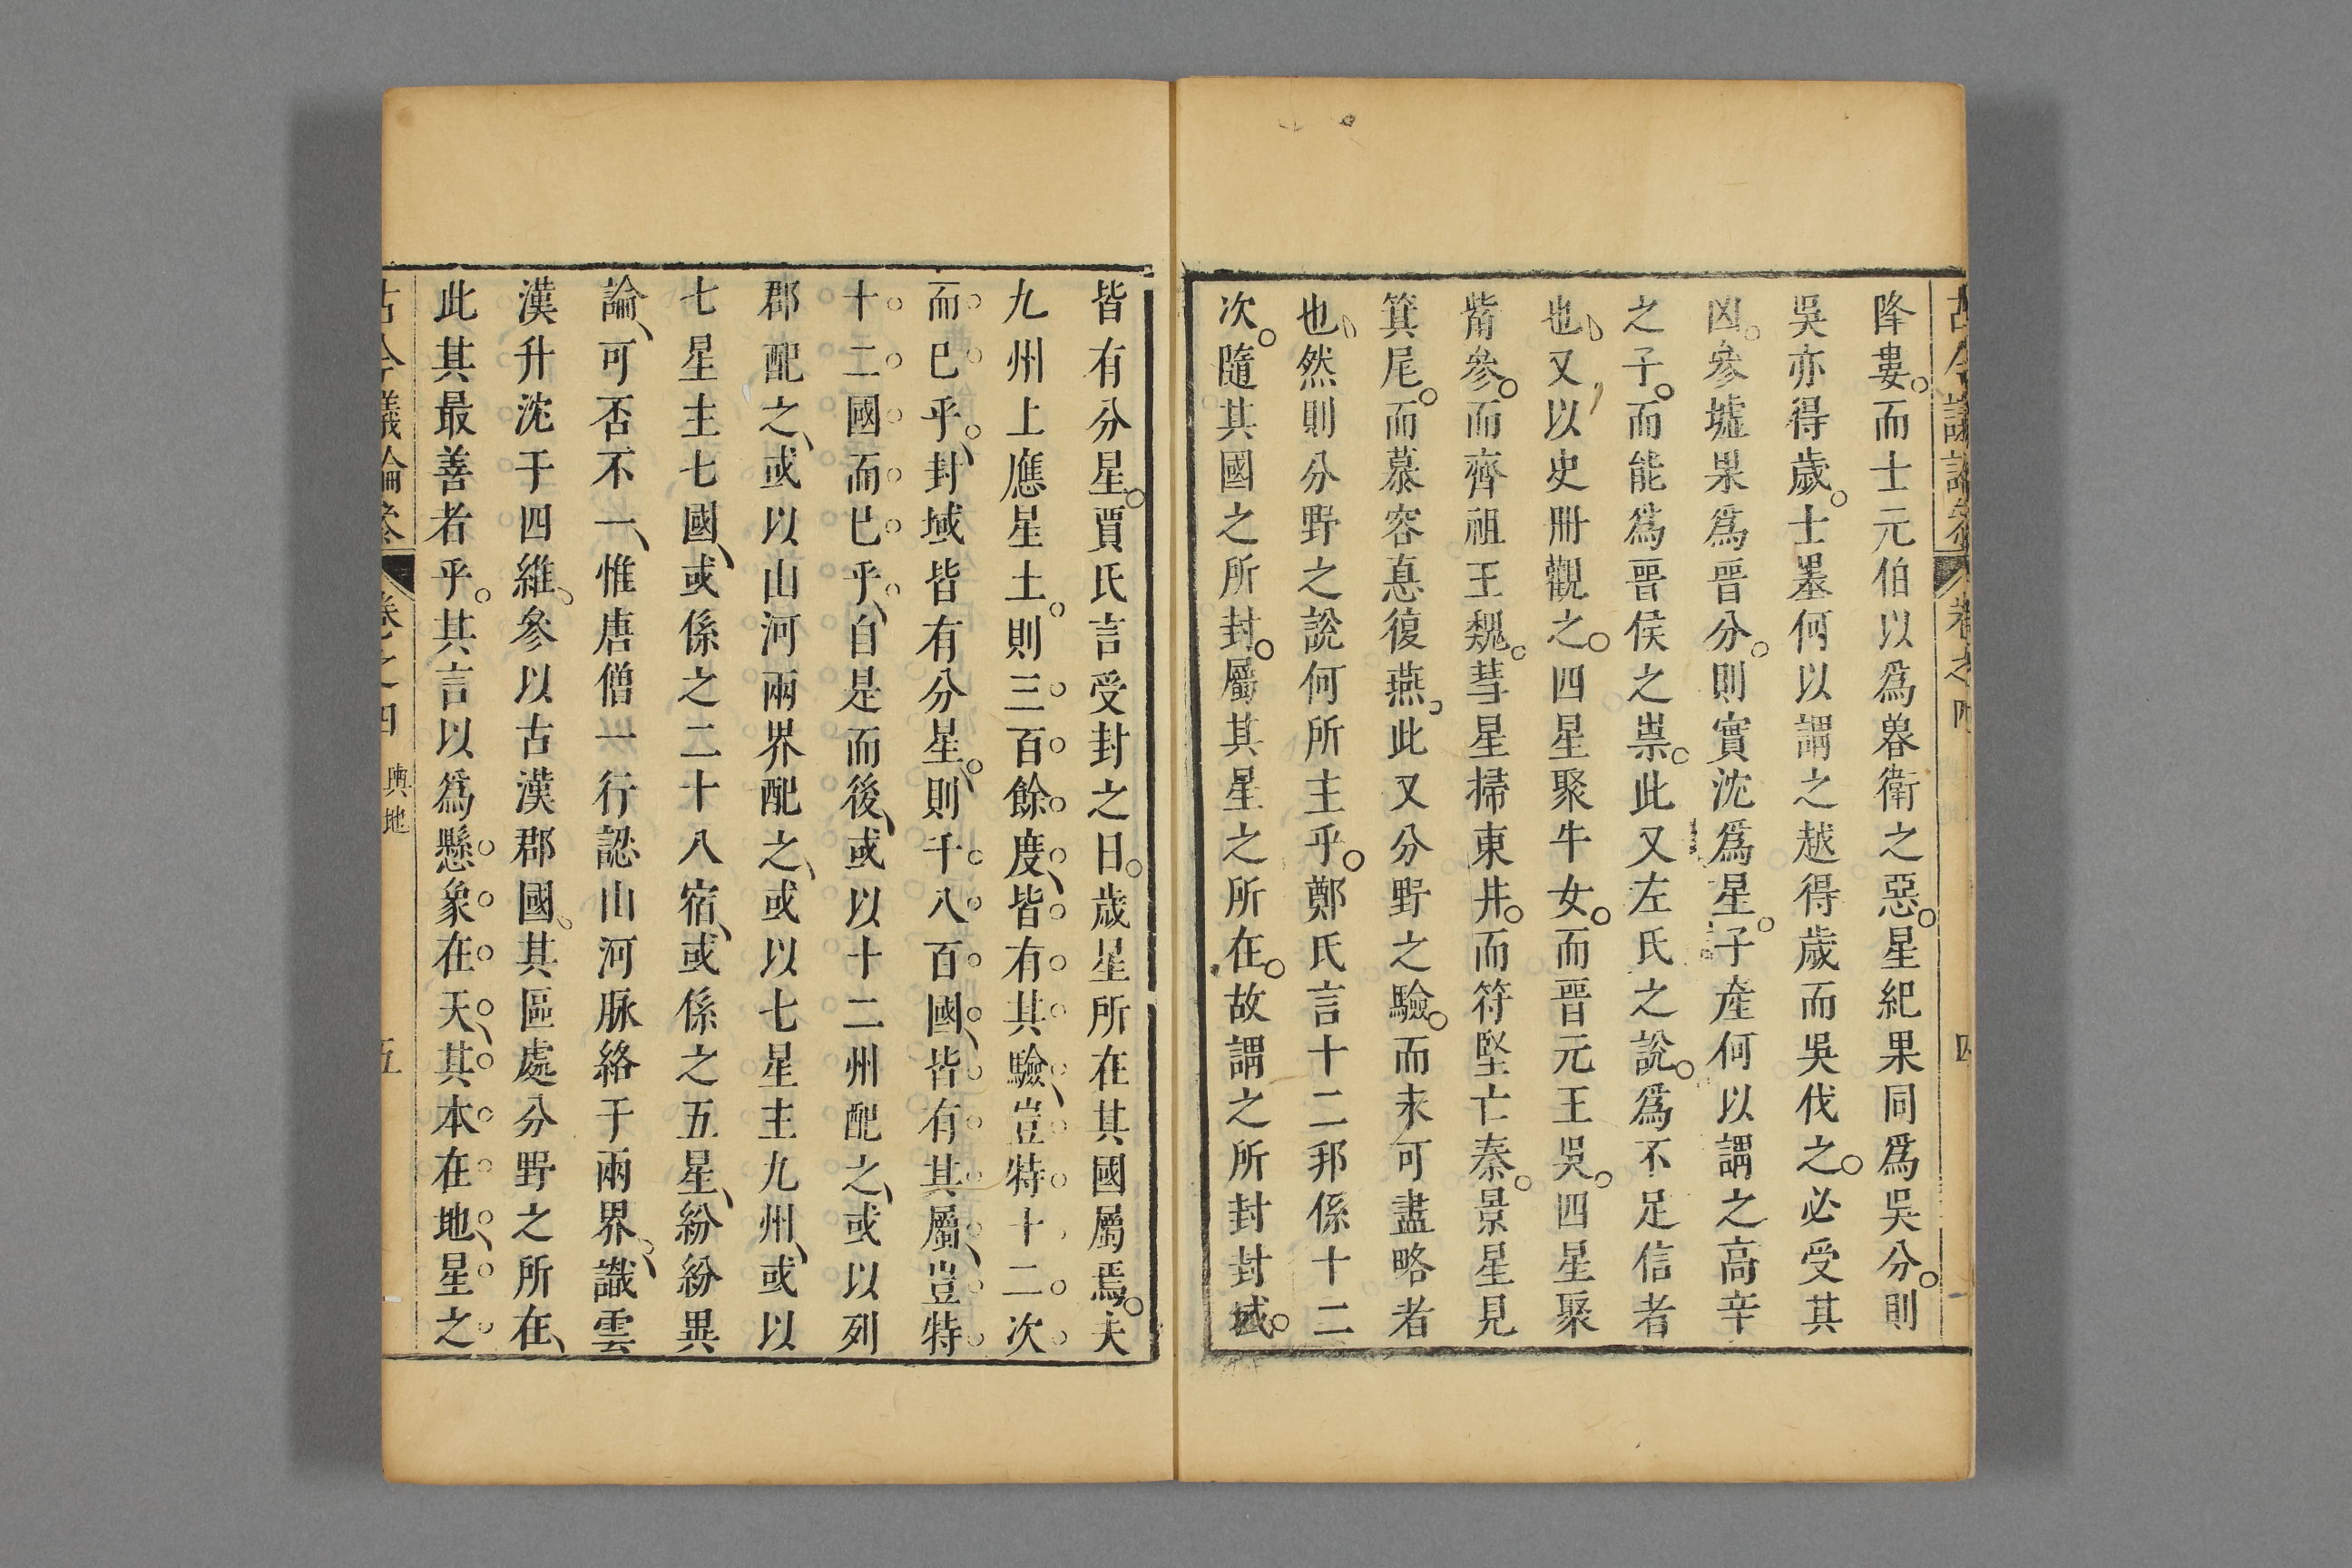 古今議論參 卷之四 四
降婁。而士元伯以為魯衛之惡。星紀果同為吳分。則
吳亦得歲。士墨何以謂之越得歲而吳伐之。必受其
凶。參墟果為晉分。則實沈為星。子產何以謂之高辛
之子。而能為晉侯之祟。此又左氏之說。為不足信者
也。又以史冊觀之。四星聚牛女。而晉元王吳。四星聚
觜參。而齊祖王魏。彗星掃東井。而符堅亡秦。景星見
箕尾。而慕容惪復燕。此又分野之驗。而未可盡略者
也。然則分野之說何所主乎。鄭氏言十二邦係十二
次。隨其國之所封。屬其星之所在。故謂之所封封域。
皆有分星。賈氏言受封之日。歲星所在其國屬焉。夫
九州上應星土。則三百餘度、皆有其驗、豈特十二次
而已乎、封域皆有分星、則千八百國、皆有其屬、豈特
十二國而已乎、自是而後、或以十二州配之、或以列
郡配之、或以山河兩界配之、或以七星主九州、或以
七星主七國、或係之二十八宿、或係之五星、紛紛異
論、可否不一、惟唐僧一行認山河脉絡于兩界、識雲
漢升沈于四維。參以古漢郡國。其區處分野之所在、
此其最善者乎。其言以為懸象在天、其本在地、星之
古今議論參 卷之四 輿地 五